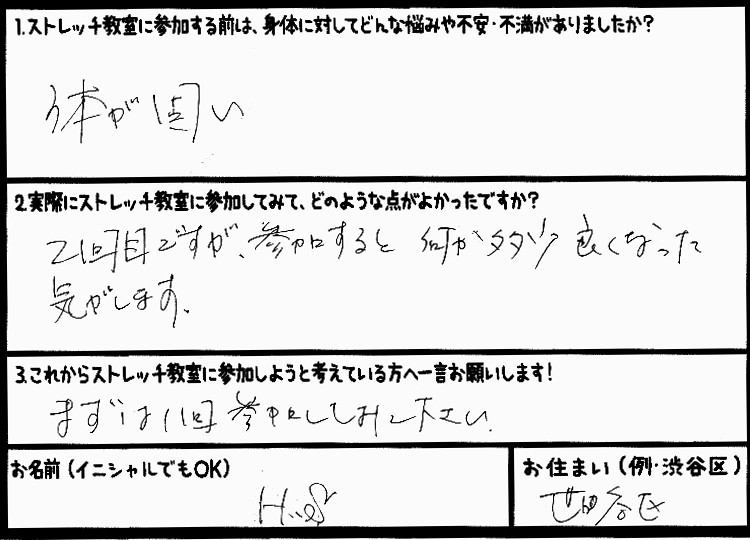 1.ストレッチ教室に参加する前は、身体に対してどんな悩みや不安・不満がありましたか？
体が固い
2.実際にストレッチ教室に参加してみて、どのような点がよかったですか？
2回目ですが、参加すると 何か多少 良くなった
気がします.
3.これからストレッチ教室に参加しようと考えている方へ一言お願いします！
まずは1回参加してみて下さい.
お名前（イニシャルでもOK）
お住まい（例・渋谷区）
H.S
世田谷区